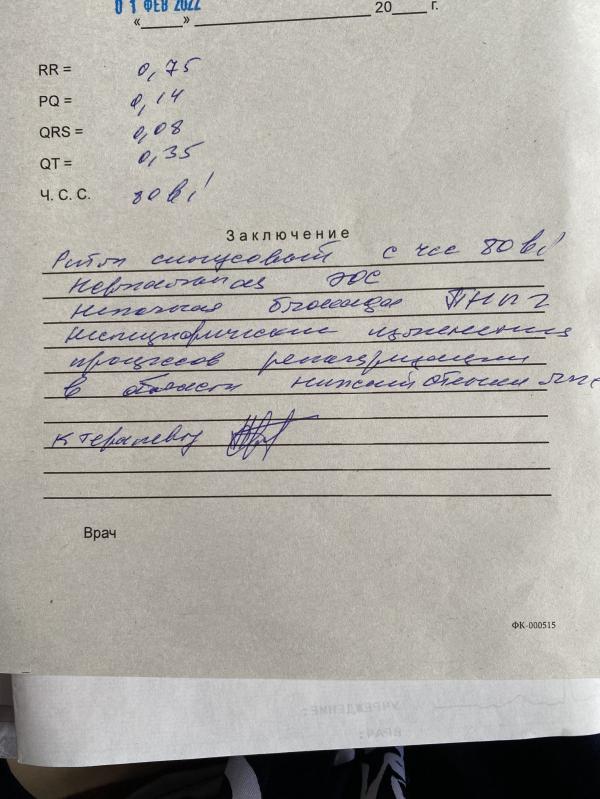 01 ФЕВ 2022
«____» ____________ 20____ г.
RR = 0,75
PQ = 0,14
QRS = 0,08
QT = 0,35
Ч. С. С. 80 в 1'
Заключение
Ритм синусовый с чсс 80 в 1'
Нормальная ЭОС
Неполная блокада ПНПГ
Неспецифические изменения
процессов реполяризации
в области нижней стенки ЛЖ
к терапевту
Врач
ФК-000515
УЧРЕЖДЕНИЕ:
ВРАЧ: